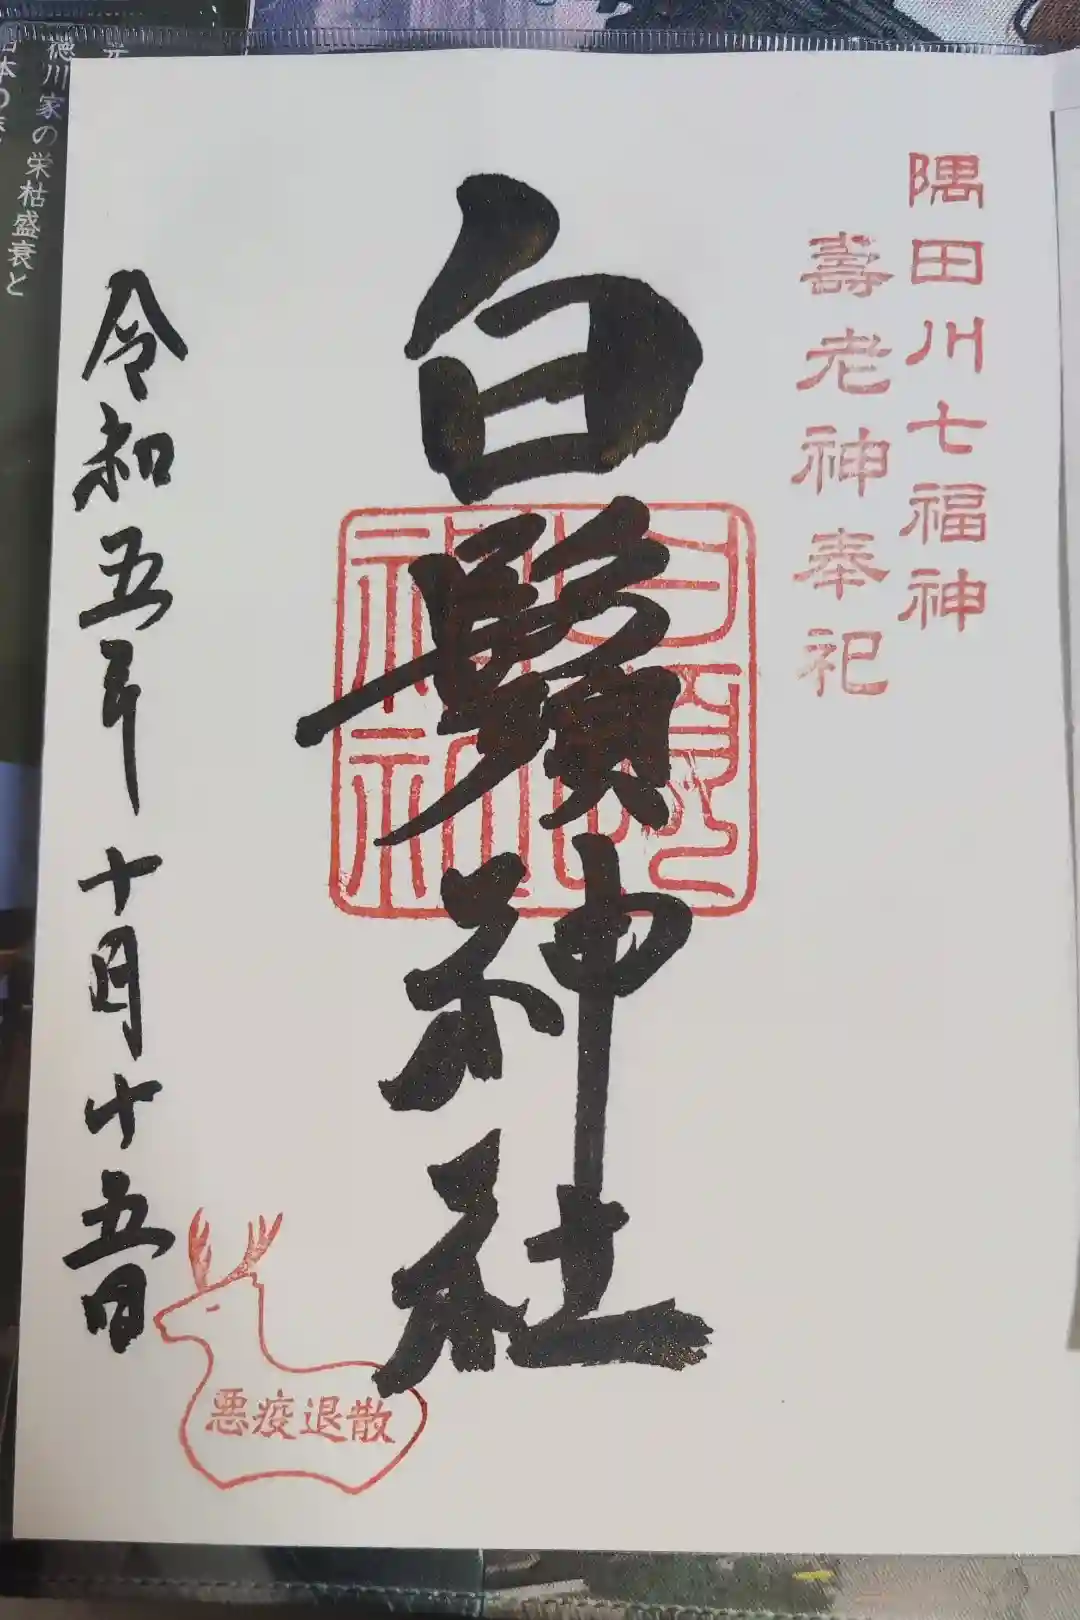 隅田川七福神
壽老神奉祀
白鬚神社
白鬚
神社
令和五年十月十五日
悪疫退散
徳川家の栄枯盛衰と